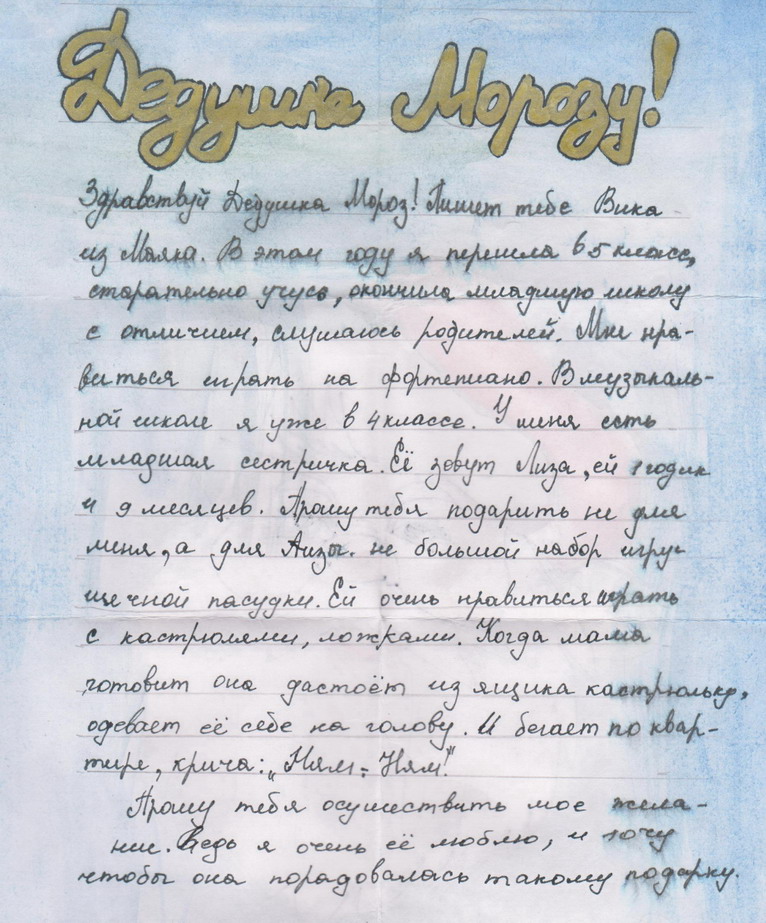 Дедушка Морозу!
Здравствуй Дедушка Мороз! Пишет тебе Вика
из Маяка. В этом году я перешла в 5 класс,
старательно учусь, окончила младшую школу
с отличием, слушаюсь родителей. Мне нра-
виться играть на фортепиано. В музыкаль-
ной школе я уже в 4 классе. У меня есть
младшая сестричка. Её зовут Лиза, ей 1 годик
и 9 месяцев. Прошу тебя подарить не для
меня, а для Лизы. не большой набор игру-
щечной пасудки. Ей очень нравиться играть
с кастрюлями, ложками. Когда мама
готовит она дастоёт из ящика кастрюльку,
одевает её себе на голову. И бегает по квар-
тире, крича: „Ням-Ням!"
Прошу тебя осуществить мое жела-
ние. Ведь я очень её люблю, и хочу
чтобы она порадовалась такому подарку.